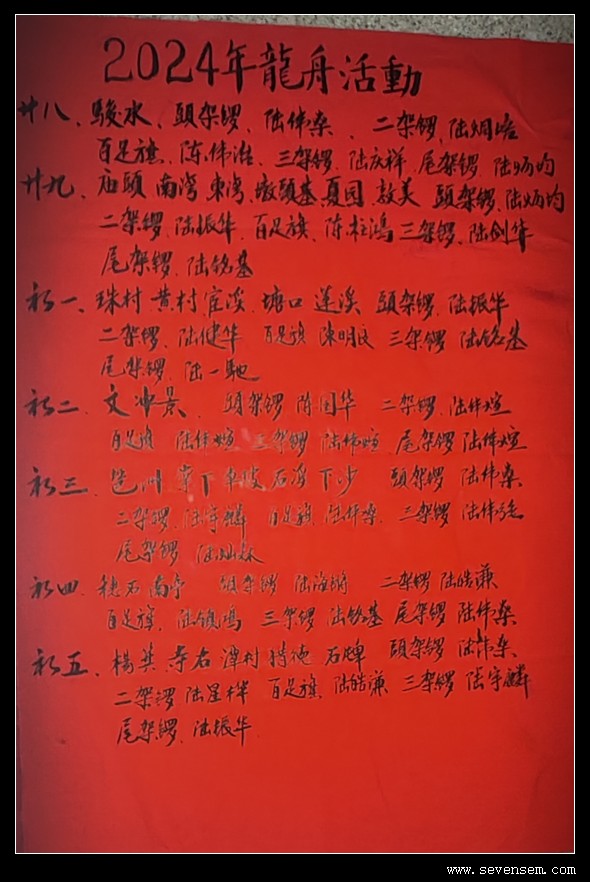 2024年龍舟活動
廿八、駿水、頭架鑼、陆伟燊、二架鑼、陆炯培
百足旗、陈伟治、三架鑼、陆庆祥、尾架鑼、陆炳均
廿九、庙頭 南湾 東湾 墩頭基 夏园 敖美 頭架鑼、陆炳均
二架鑼、陆振华、百足旗、陈柱鴻 三架鑼、陆剑华
尾架鑼、陆铭基
初一、珠村 黄村 宦溪、塘口 莲溪 頭架鑼、陆振华
二架鑼、陆健华 百足旗 陳明 三架鑼 陆铭基
尾架鑼、陆一馳
初二、文冲景、頭架鑼 陈国华 二架鑼、陆伟煊
百足旗 陆伟煊 三架鑼 陆伟煊 尾架鑼 陆伟煊
初三、車陂 石溪 下沙 頭架鑼 陆伟燊
二架鑼、陆宇麟 百足旗 陆伟燊、三架鑼 陆伟强
尾架鑼 陆灿
初四、穂石 南亭 頭架鑼 陆海 二架鑼 陆皓谦
百足旗、陆 鴻 三架鑼 陆铭基 尾架鑼 陆伟燊
初五、楊箕 寺右 潭村 猎地 石牌 頭架鑼 陆伟燊
二架鑼 陆星 百足旗、陆皓谦 三架鑼 陆宇麟
尾架鑼、陆振华
www.sevensem.com